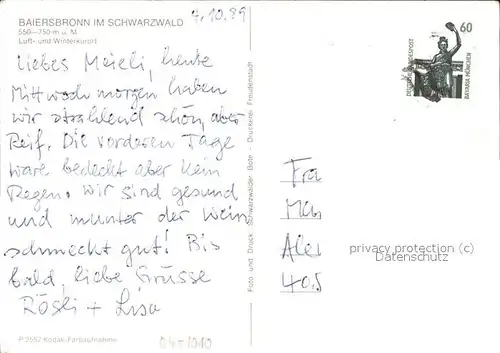 BAIERSBRONN IM SCHWARZWALD
550—750 m ü. M.
Luft- und Winterkurort
4.10.89
Liebes Meieli, heute
Mittwoch morgen haben
wir strahlend schön, aber
Reif. Die vorderen Tage
ware bedeckt aber kein
Regen. Wir sind gesund
und munter der Wein
schmeckt gut! Bis
bald, liebe Grüsse
Rösli + Lisa
P 7552 Kodak-Farbaufnahme
Foto und Druck: Schwarzwälder Bote · Druckerei Freudenstadt
60
DEUTSCHE BUNDESPOST
BAVARIA MÜNCHEN
Fra
privacy protection (c)
Datenschutz